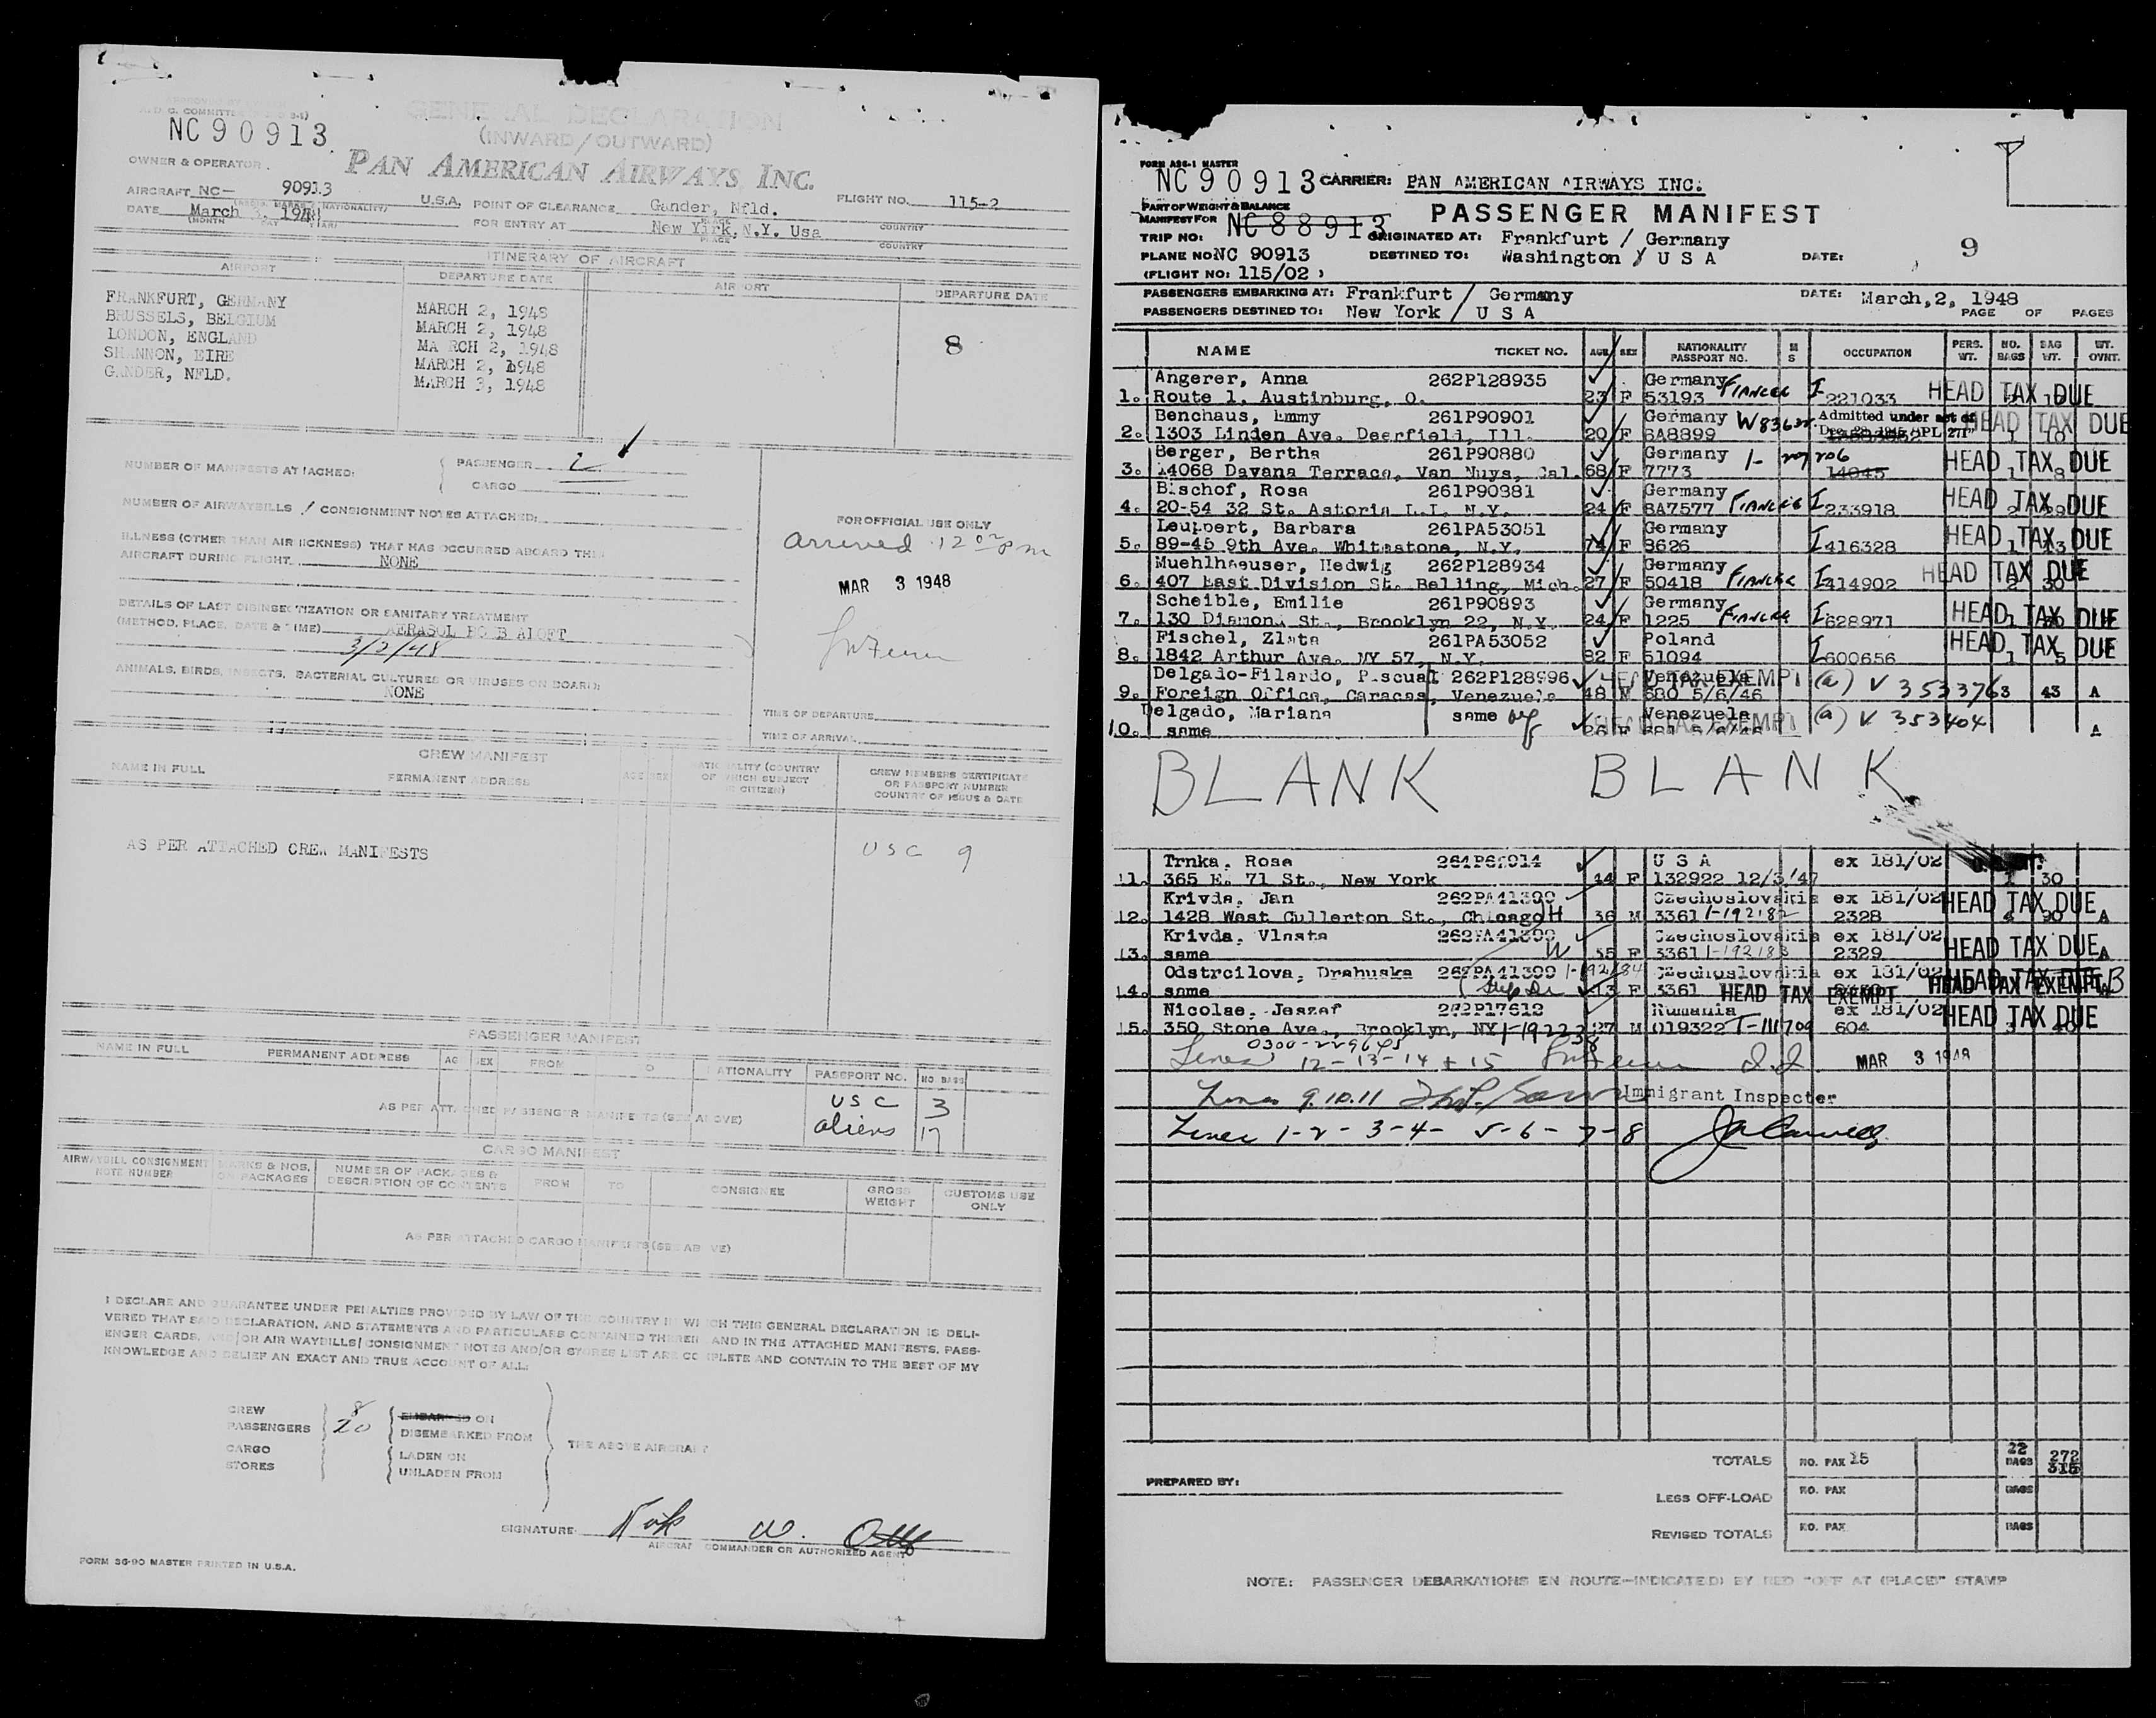 NC90913
GENERAL DECLARATION
(INWARD/OUTWARD)
OWNER & OPERATOR.
PAN AMERICAN AIRWAYS INC.
AIRCRAFT NC- 90913 U.S.A. POINT OF CLEARANCE Gander, Nfld. FLIGHT NO. 115-2
DATE March 3, 1948 FOR ENTRY AT New Yirk, N.Y. Usa
(MONTH DAY YEAR) PLACE COUNTRY
ITINERARY OF AIRCRAFT
AIRPORT DEPARTURE DATE AIRPORT DEPARTURE DATE
FRANKFURT, GERMANY MARCH 2, 1948
BRUSSELS, BELGIUM MARCH 2, 1948
LONDON, ENGLAND MA RCH 2, 1948 8
SHANNON, EIRE MARCH 2, 1948
GANDER, NFLD. MARCH 3, 1948
NUMBER OF MANIFESTS ATTACHED: PASSENGER 2
CARGO
NUMBER OF AIRWAYBILLS / CONSIGNMENT NOTES ATTACHED:
FOR OFFICIAL USE ONLY
arrived 12 00 pm
MAR 3 1948
ILLNESS (OTHER THAN AIR SICKNESS) THAT HAS OCCURRED ABOARD THE
AIRCRAFT DURING FLIGHT. NONE
DETAILS OF LAST DISINSECTIZATION OR SANITARY TREATMENT
(METHOD, PLACE, DATE & TIME) AERASOL BOMB ALOFT
3/2/48
ANIMALS, BIRDS, INSECTS, BACTERIAL CULTURES OR VIRUSES ON BOARD:
NONE
TIME OF DEPARTURE
TIME OF ARRIVAL
CREW MANIFEST
NAME IN FULL PERMANENT ADDRESS AGE SEX NATIONALITY (COUNTRY OF WHICH SUBJECT OR CITIZEN) CREW MEMBERS CERTIFICATE OR PASSPORT NUMBER COUNTRY OF ISSUE & DATE
AS PER ATTACHED CREW MANIFESTS USC 9
PASSENGER MANIFEST
NAME IN FULL PERMANENT ADDRESS AG SEX FROM TO NATIONALITY PASSPORT NO. NO. BAGS
USC 3
AS PER ATTACHED PASSENGER MANIFESTS (SEE ABOVE) aliens 17
CARGO MANIFEST
AIRWAYBILL CONSIGNMENT NOTE NUMBER MARKS & NOS. ON PACKAGES NUMBER OF PACKAGES & DESCRIPTION OF CONTENTS FROM TO CONSIGNEE GROSS WEIGHT CUSTOMS USE ONLY
AS PER ATTACHED CARGO MANIFESTS (SEE ABOVE)
I DECLARE AND GUARANTEE UNDER PENALTIES PROVIDED BY LAW OF THE COUNTRY IN WHICH THIS GENERAL DECLARATION IS DELI-
VERED THAT SAID DECLARATION, AND STATEMENTS AND PARTICULARS CONTAINED THEREIN AND IN THE ATTACHED MANIFESTS, PASS-
ENGER CARDS, AND/OR AIR WAYBILLS/CONSIGNMENT NOTES AND/OR STORES LIST ARE COMPLETE AND CONTAIN TO THE BEST OF MY
KNOWLEDGE AND BELIEF AN EXACT AND TRUE ACCOUNT OF ALL:
CREW 8 EMBARKED ON
PASSENGERS 20 DISEMBARKED FROM
THE ABOVE AIRCRAFT
CARGO LADEN ON
STORES UNLADEN FROM
SIGNATURE
AIRCRAFT COMMANDER OR AUTHORIZED AGENT
FORM 36-90 MASTER PRINTED IN U.S.A.
FORM A36-1 MASTER
NC90913 CARRIER: PAN AMERICAN AIRWAYS INC.
PART OF WEIGHT & BALANCE
MANIFEST FOR NC88913 PASSENGER MANIFEST
TRIP NO: ORIGINATED AT: Frankfurt / Germany 9
PLANE NO: NC 90913 DESTINED TO: Washington / U S A DATE:
(FLIGHT NO: 115/02 )
PASSENGERS EMBARKING AT: Frankfurt / Germany DATE: March,2, 1948
PASSENGERS DESTINED TO: New York / U S A PAGE OF PAGES
NAME TICKET NO. AGE SEX NATIONALITY PASSPORT NO. M S OCCUPATION PERS. WT. NO. BAGS BAG WT. WT. OVNT.
Angerer, Anna 262P128935 Germany Fiancee HEAD TAX DUE
1. Route 1, Austinburg, O. 23 F 53193 I 221033
Benchaus, Emmy 261P90901 Germany Admitted under act of HEAD TAX DUE
2. 1303 Linden Ave. Deerfield, Ill. 20 F 6A8899 Dec. 28 1945 "PL 271" 1 10
Berger, Bertha 261P90880 Germany HEAD TAX DUE
3. 14068 Davana Terrace, Van Nuys, Cal. 68 F 7773 14045 1 8
Bischof, Rosa 261P90881 Germany Fiancee HEAD TAX DUE
4. 20-54 32 St. Astoria L.I. N.Y. 24 F 8A7577 I 233918 2 29
Leuppert, Barbara 261PA53051 Germany HEAD TAX DUE
5. 89-45 9th Ave. Whitestone, N.Y. 74 F 8626 I 416328 1 13
Muehlhaeuser, Hedwig 262P128934 Germany Fiancee HEAD TAX DUE
6. 407 East Division St. Belling, Mich. 27 F 50418 I 414902 2 30
Scheible, Emilie 261P90893 Germany Fiancee HEAD TAX DUE
7. 130 Diamond St., Brooklyn 22, N.Y. 24 F 1225 I 628971
Fischel, Zlata 261PA53052 Poland HEAD TAX DUE
8. 1842 Arthur Ave. NY 57, N.Y. 82 F 51094 I 600656 1 5
Delgado-Filardo, Pascual 262P128996 Venezuela HEAD TAX EXEMPT (a) V 353376
9. Foreign Office, Caracas, Venezuela 48 M 680 5/6/46 3 43 A
Delgado, Mariana same Venezuela HEAD TAX EXEMPT (a) V 353404
10. same 26 F 681 5/6/46 A
BLANK BLANK
Trnka, Rosa U S A ex 181/02
11. 365 E. 71 St., New York 44 F 132922 12/3/47 1 30
Krivda, Jan 262PA41399 Czechoslovakia ex 181/02 HEAD TAX DUE
12. 1428 West Cullerton St., Chicago H 36 M 3361 1-192182 2328 4 90 A
Krivda, Vlasta 262PA41399 Czechoslovakia ex 181/02 HEAD TAX DUE
13. same W 35 F 3361 1-192183 2329 A
Odstrcilova, Drahuska 262PA41399 1-192184 Czechoslovakia ex 181/02
14. same Step Da 13 F 3361 HEAD TAX EXEMPT HEAD TAX EXEMPT
Nicolae, Jeszef 262P17612 Rumania ex 181/02 HEAD TAX DUE
15. 350 Stone Ave., Brooklyn, NY 27 M 019322 T-111709 604
Lines 12-13-14 + 15 MAR 3 1948
Lines 9.10.11 Immigrant Inspector
Lines 1-2-3-4-5-6-7-8
TOTALS NO. PAX 15 22 BAGS 272 315
PREPARED BY:
LESS OFF-LOAD NO. PAX BAGS
REVISED TOTALS NO. PAX BAGS
NOTE: PASSENGER DEBARKATIONS EN ROUTE-INDICATED BY RED "OFF AT (PLACE)" STAMP